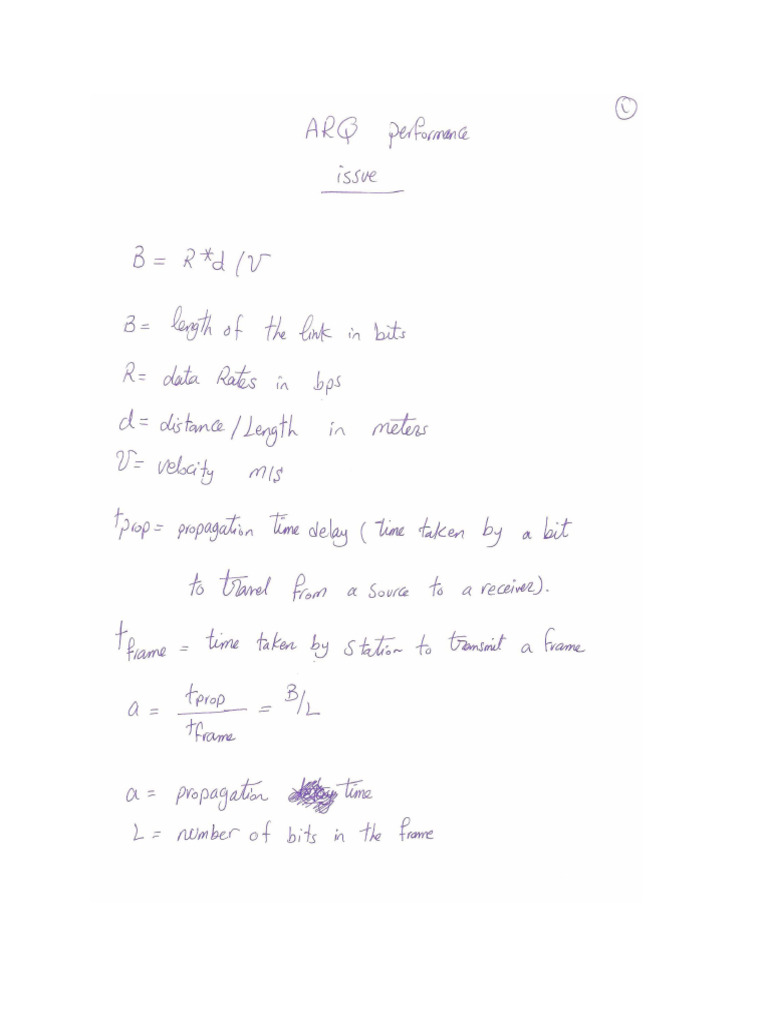 ARQ performance
issue
B = R*d/V
B = length of the link in bits
R = data Rates in bps
d = distance/Length in meters
V = velocity m/s
tprop = propagation time delay (time taken by a bit
to travel from a source to a receiver).
tframe = time taken by station to transmit a frame
a = tprop/tframe = B/L
a = propagation time
L = number of bits in the frame